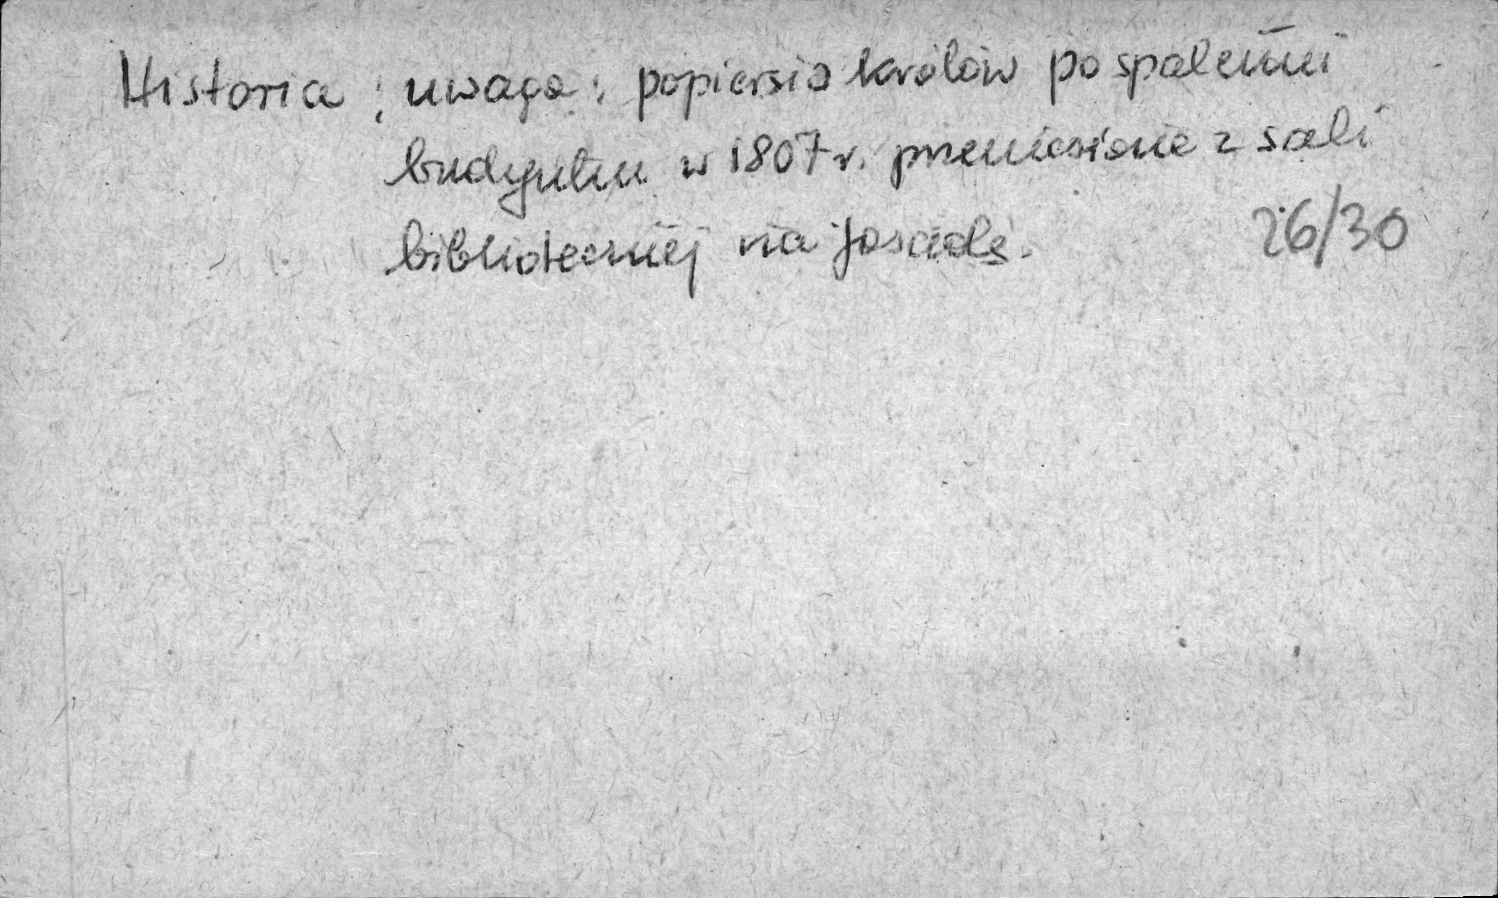 Historia; uwaga: popiersia królów po spaleniu
budynku w 1807 r. przeniesione z sali
bibliotecznej na fasadę.
26/30